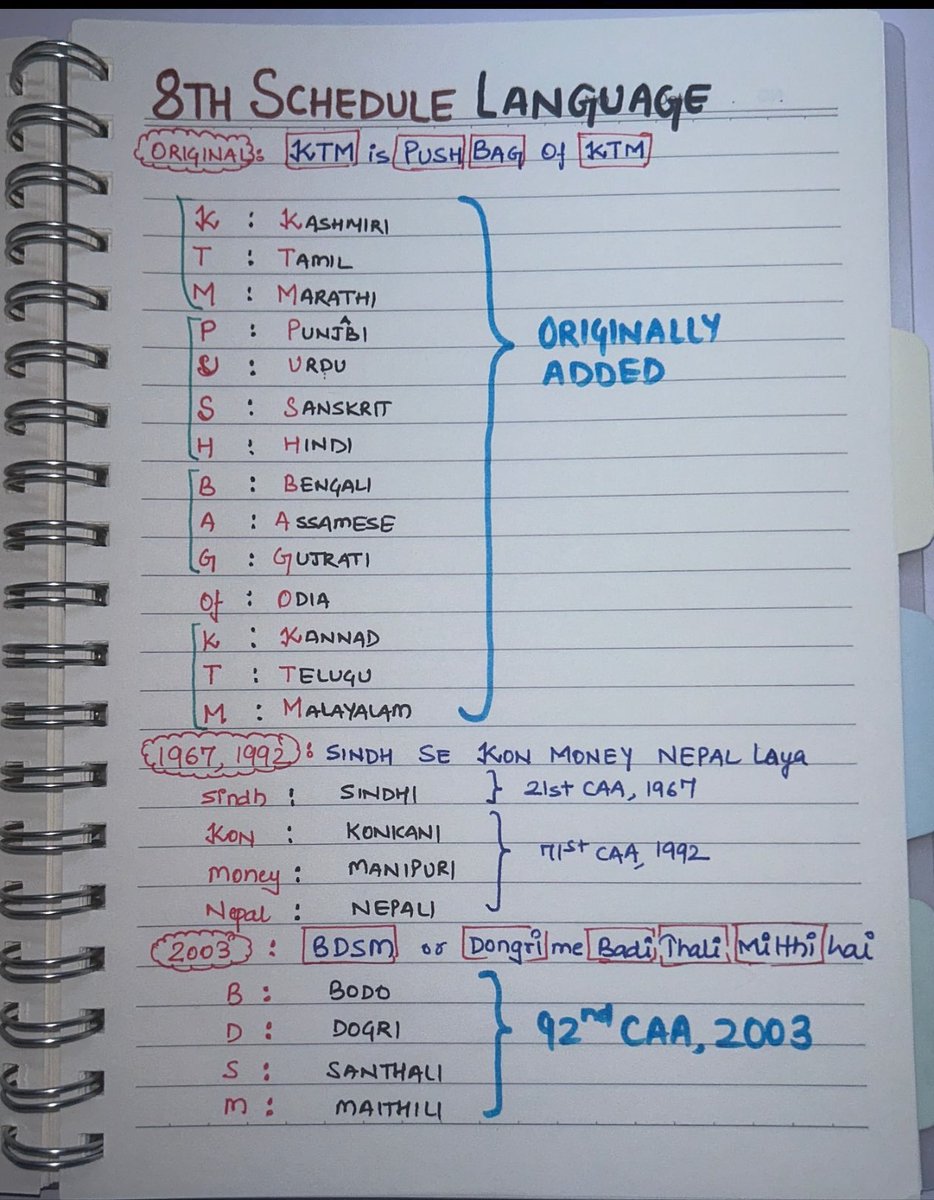 8TH SCHEDULE LANGUAGE
ORIGINAL: KTM is PUSH BAG Of KTM
K : KASHMIRI
T : TAMIL
M : MARATHI
P : PUNJABI
U : URDU
S : SANSKRIT
H : HINDI
B : BENGALI
A : ASSAMESE
G : GUJRATI
Of : ODIA
K : KANNAD
T : TELUGU
M : MALAYALAM
ORIGINALLY
ADDED
1967, 1992 : SINDH SE KON MONEY NEPAL Laya
Sindh : SINDHI } 21st CAA, 1967
KON : KONKANI
Money : MANIPURI
Nepal : NEPALI
71st CAA, 1992
2003 : BDSM or Dongri me Badi Thali Mitthi hai
B : BODO
D : DOGRI
S : SANTHALI
M : MAITHILI
92nd CAA, 2003